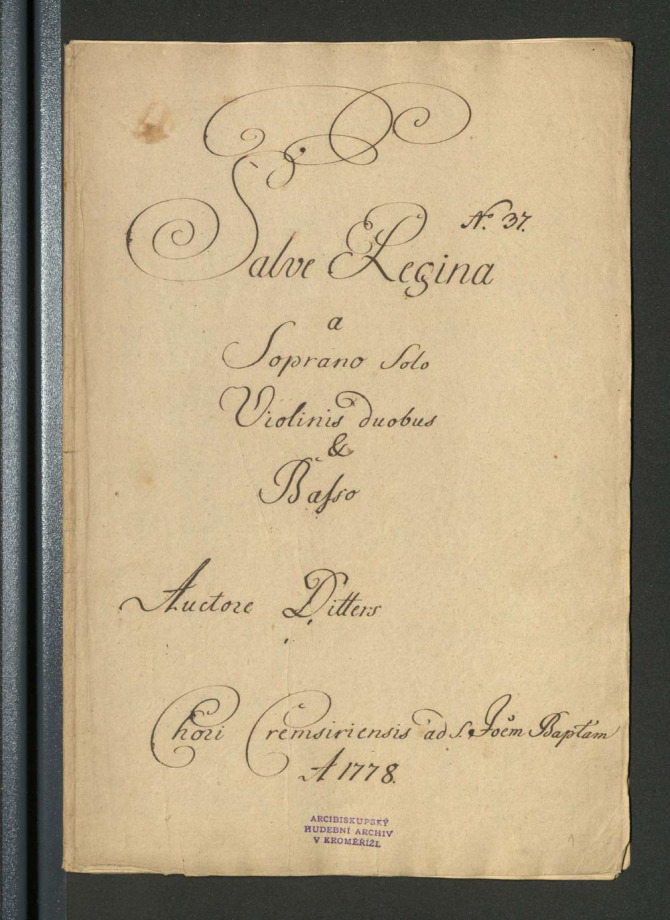 Nº 37.
Salve Regina
a
Soprano Solo
Violinis duobus
&
Baſso
Auctore Ditters
Chori Cremsiriensis ad S. Joem̃ Bap̃tam
A 1778.
ARCIBISKUPSKÝ
HUDEBNÍ ARCHIV
V KROMĚŘÍŽI.